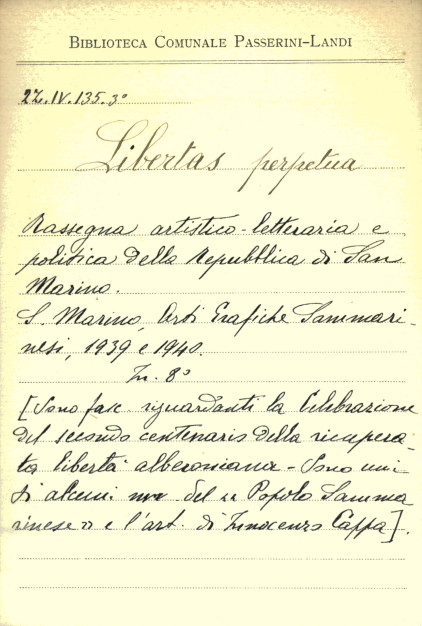 BIBLIOTECA COMUNALE PASSERINI-LANDI
2Z.IV.135.3°
Libertas perpetua
Rassegna artistico-letteraria e
politica della Repubblica di San
Marino.
S. Marino, Arti Grafiche Sammari-
nesi, 1939 e 1940.
In. 8°
[Sono fasc. riguardanti la Celebrazione
del secondo centenario della ricupera-
ta libertà alberoniana - Sono uni-
ti alcuni del "Popolo Samma
rinese" e l'art. di Innocenzo Cappa].